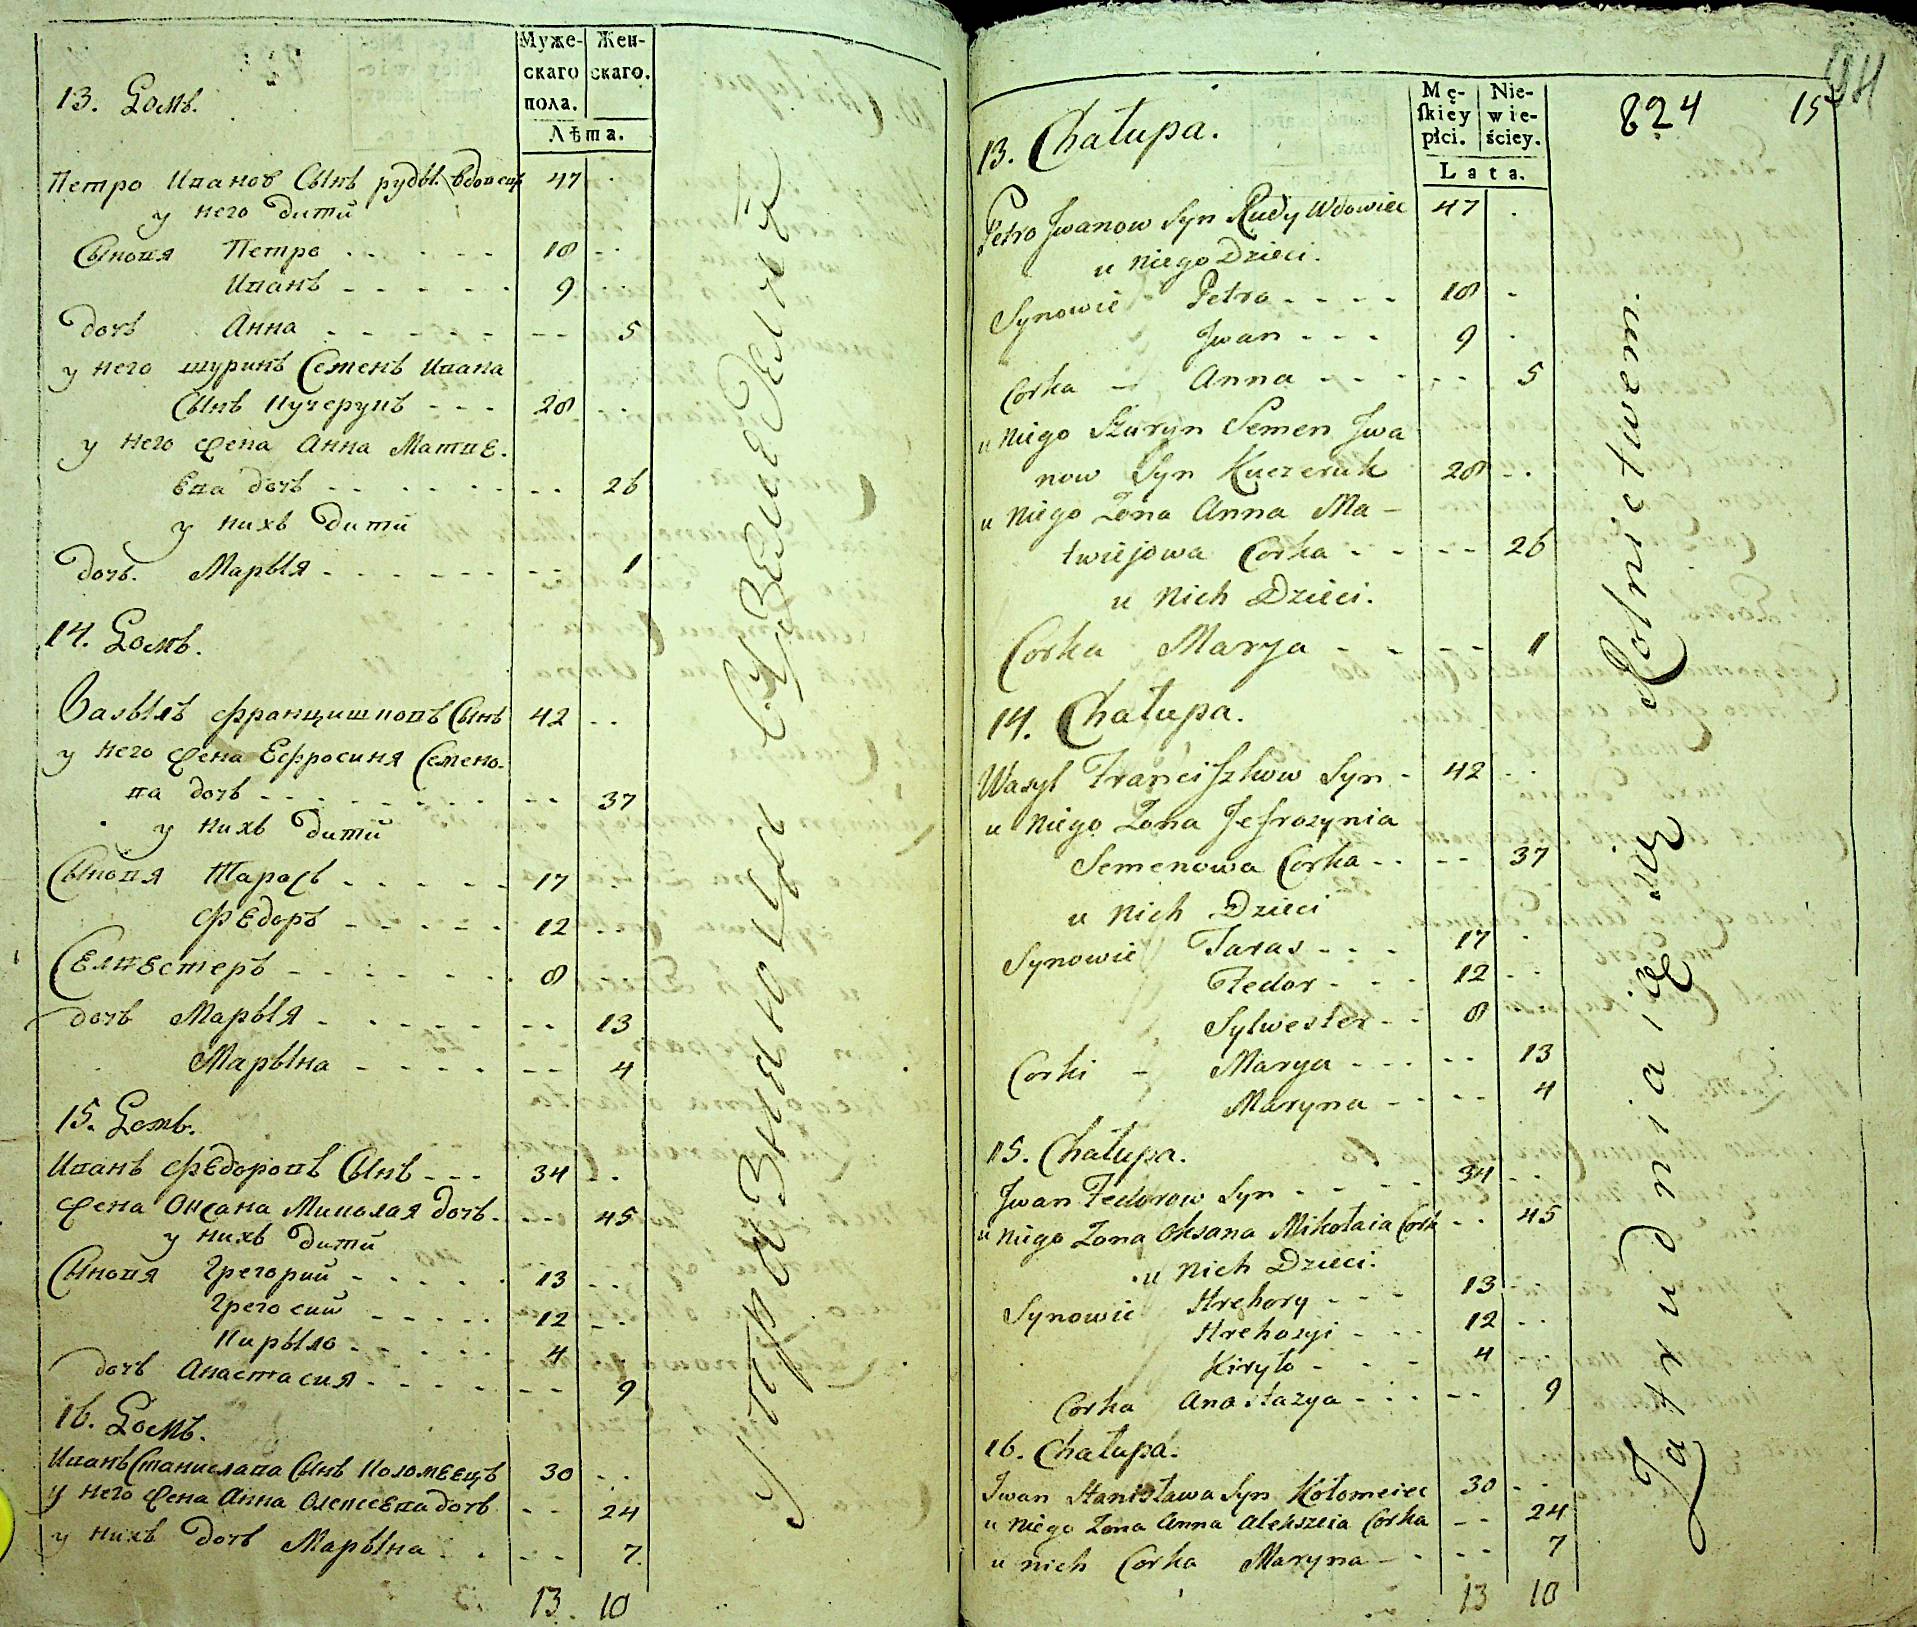 Муже-
скаго
пола.
Жен-
скаго.
Лѣта.
13. Домъ.
Петро Иванов Сынъ рудый вдовецъ 47 -
у него дитй
Сыновя Петро - - - - - 18 - -
Иванъ - - - - - 9 - -
дочь Анна - - - - - - - 5
у него шуринъ Семенъ Ивана
Сынъ Кучерукъ - - - 28 - -
у него жена Анна Матве-
ева дочь - - - - - - - - 26
у нихъ дитй
дочь. Марыя - - - - - - - - 1
14. Домъ.
Василь францишковъ Сынъ 42 - -
у него жена Ефросиня Семено-
ва дочь - - - - - - - - 37
у нихъ дитй
Сыновя Тарась - - - - - 17 -
Федоръ - - - - - 12 - -
Селвестеръ - - - - - - 8
дочь Марыя - - - - - - - - 13
Марына - - - - - - - 4
15. Домъ.
Иванъ Федоровъ Сынъ - - - 34 - -
жена Оксана Миколая дочь - - - 45
у нихъ дитй
Сыновя Грегорий - - - - - 13 - -
Грегосий - - - - - 12 - -
Кирыло - - - - - 4
дочь Анастасия - - - - - - - 9
16. Домъ.
Иванъ Станислава Сынъ Коломеецъ 30 - -
у него жена Анна Олексеева дочь - - 24
у нихъ дочь Марына - - - - 7.
13. 10
824 15
Mę-
ſkiey
płci.
Nie-
wie-
ściey.
Lata.
13. Chałupa.
Petro Jwanow Syn Rudy Wdowiec 47 -
u niego Dzieci.
Synowie Petro - - - - 18 -
Jwan - - - 9 -
Corka - Anna - - - - - 5
u niego Szuryn Semen Jwa
now Syn Kuczeruk 28 - -
u niego Zona Anna Ma -
twiejowa Corka - - - - - 26
u Nich Dzieci.
Corka Marya - - - - 1
14. Chałupa.
Wasyl Franciszkow Syn - 42 - -
u niego Zona Jefrozynia
Semenowa Corka - - - - 37
u nich Dzieci
Synowie Taras - - - 17 -
Fedor - - - 12 - -
Sylwester - - 8
Corki - Marya - - - - - 13
Maryna - - - - 4
15. Chałupa.
Jwan Fedorow Syn - - - - 34 - -
u niego Zona Oksana Mikołaia Cork - - 45
u nich Dzieci.
Synowie Hrehory - - - 13 - -
Hrehosyi - - - 12 - -
Kiryło - - - 4 - -
Corka Anastazya - - - - - 9
16. Chałupa.
Jwan Stanisława Syn Kołomeiec 30 - -
u niego Zona Anna Alekszeia Corka - - 24
u nich Corka Maryna - - - - 7
13 10
Zatrudniaią się Rolnictwem.